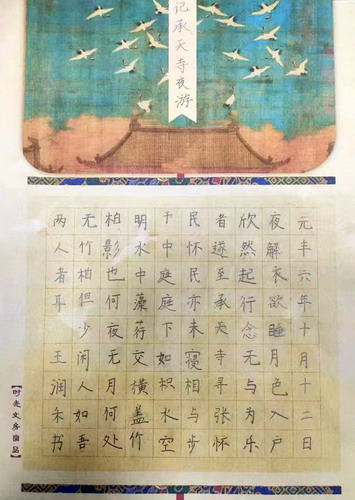 记承天寺夜游
元丰六年十月十二日
夜解衣欲睡月色入户
欣然起行念无与为乐
者遂至承天寺寻张怀
民怀民亦未寝相与步
于中庭庭下如积水空
明水中藻荇交横盖竹
柏影也何夜无月何处
无竹柏但少闲人如吾
两人者耳 王润禾书
【时光文房出品】